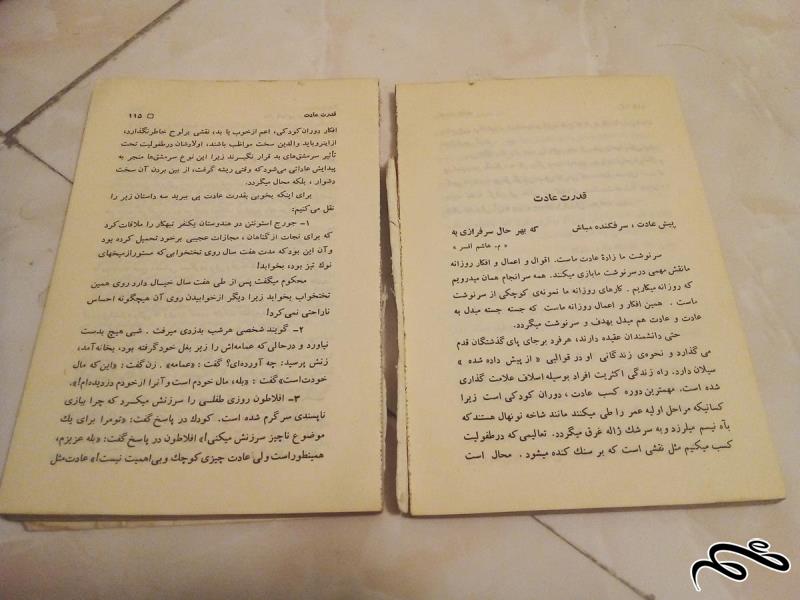 قدرت عادت
پیش عادت ، سرفکنده مباش که بهر حال سرفرازی به
« م. هاشم افسر »
سرنوشت ما زادهٔ عادت ماست. اقوال و اعمال و افکار روزانه
ما نقش مهمی در سرنوشت ما بازی میکند. همه سرانجام همان میدرویم
که روزانه میکاریم. کارهای روزانه ما نمونه‌ی کوچکی از سرنوشت
ماست . همین افکار و اعمال روزانه ماست که جسته جسته مبدل به
عادت و عادت هم مبدل بهدف و سرنوشت میگردد.
حتی دانشمندان عقیده دارند، هرفرد برجای پای گذشتگان قدم
می گذارد و نحوه‌ی زندگانی او در قوالبی « از پیش داده شده »
سیلان دارد. راه زندگی اکثریت افراد بوسیله اسلاف علامت گذاری
شده است. مهمترین دوره کسب عادت ، دوران کودکی است زیرا
کسانیکه مراحل اولیه عمر را طی میکنند مانند شاخه نونهال هستند که
بآه نسیم میلرزد و به سرشك ژاله غرق میگردد. تعالیمی که درطفولیت
کسب میکنیم مثل نقشی است که بر سنك کنده میشود . محال است
قدرت عادت □ ۱۱۵
افکار دوران کودکی، اعم ازخوب یا بد، نقشی برلوح خاطر نگذارد،
از اینرو باید والدین سخت مواظب باشند، اولادشان درطفولیت تحت
تأثیر سرمشق‌های بد قرار نگیرند زیرا این نوع سرمشق‌ها منجر به
پیدایش عاداتی می‌شود که وقتی ریشه گرفت، از بین بردن آن سخت
دشوار ، بلکه محال میگردد.
برای اینکه بخوبی بقدرت عادت پی ببرید سه داستان زیر را
نقل می‌کنیم:
۱- جورج استونتن در هندوستان یکنفر تبهکار را ملاقات کرد
که برای نجات از گناهان ، مجازات عجیبی برخود تحمیل کرده بود
و آن این بود که مدت هفت سال روی تختخوابی که مستور از میخهای
نوك تیز بود، بخوابد!
محکوم میگفت پس از طی هفت سال خیال دارد روی همین
تختخواب بخوابد زیرا دیگر ازخوابیدن روی آن هیچگونه احساس
ناراحتی نمی کرد!
۲- گویند شخصی هرشب بدزدی میرفت . شبی هیچ بدست
نیاورد و درحالی که عمامه‌اش را زیر بغل خود گرفته بود، بخانه آمد،
زنش پرسید: چه آورده‌ای؟ گفت : «عمامه» . زن گفت: «این که مال
خودت است» گفت : «بله، مال خودم است و آنرا از خودم دزدیده‌ام!».
۳- افلاطون روزی طفلی را سرزنش میکرد که چرا ببازی
ناپسندی سر گرم شده است. کودك در پاسخ گفت: «تو مرا برای یك
موضوع ناچیز سرزنش میکنی!» افلاطون در پاسخ گفت: «بله عزیزم،
همینطور است ولی عادت چیزی کوچك و بی اهمیت نیست!» عادت مثل